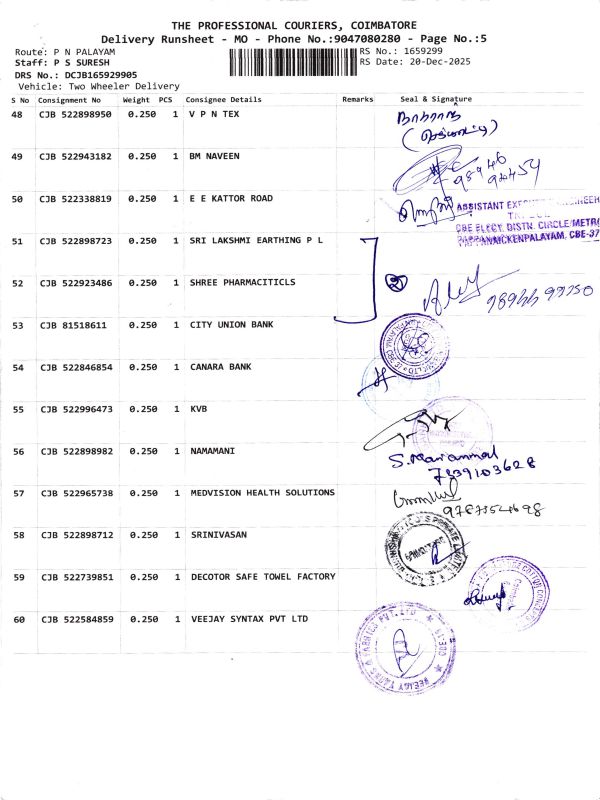 THE PROFESSIONAL COURIERS, COIMBATORE
Delivery Runsheet - MO - Phone No.:9047080280 - Page No.:5
Route: P N PALAYAM
RS No.: 1659299
Staff: P S SURESH
RS Date: 20-Dec-2025
DRS No.: DCJB165929905
Vehicle: Two Wheeler Delivery
S No Consignment No Weight PCS Consignee Details Remarks Seal & Signature
48 CJB 522898950 0.250 1 V P N TEX
49 CJB 522943182 0.250 1 BM NAVEEN
98946
50 CJB 522338819 0.250 1 E E KATTOR ROAD
ASSISTANT
CBE ELECY. DISTN. CIRCLE/METRO
PAPPANAICKENPALAYAM, CBE-37
51 CJB 522898723 0.250 1 SRI LAKSHMI EARTHING P L
52 CJB 522923486 0.250 1 SHREE PHARMACITICLS
2
53 CJB 81518611 0.250 1 CITY UNION BANK
54 CJB 522846854 0.250 1 CANARA BANK
55 CJB 522996473 0.250 1 KVB
56 CJB 522898982 0.250 1 NAMAMANI
S. Mariammal
7339103628
57 CJB 522965738 0.250 1 MEDVISION HEALTH SOLUTIONS
58 CJB 522898712 0.250 1 SRINIVASAN
59 CJB 522739851 0.250 1 DECOTOR SAFE TOWEL FACTORY
60 CJB 522584859 0.250 1 VEEJAY SYNTAX PVT LTD